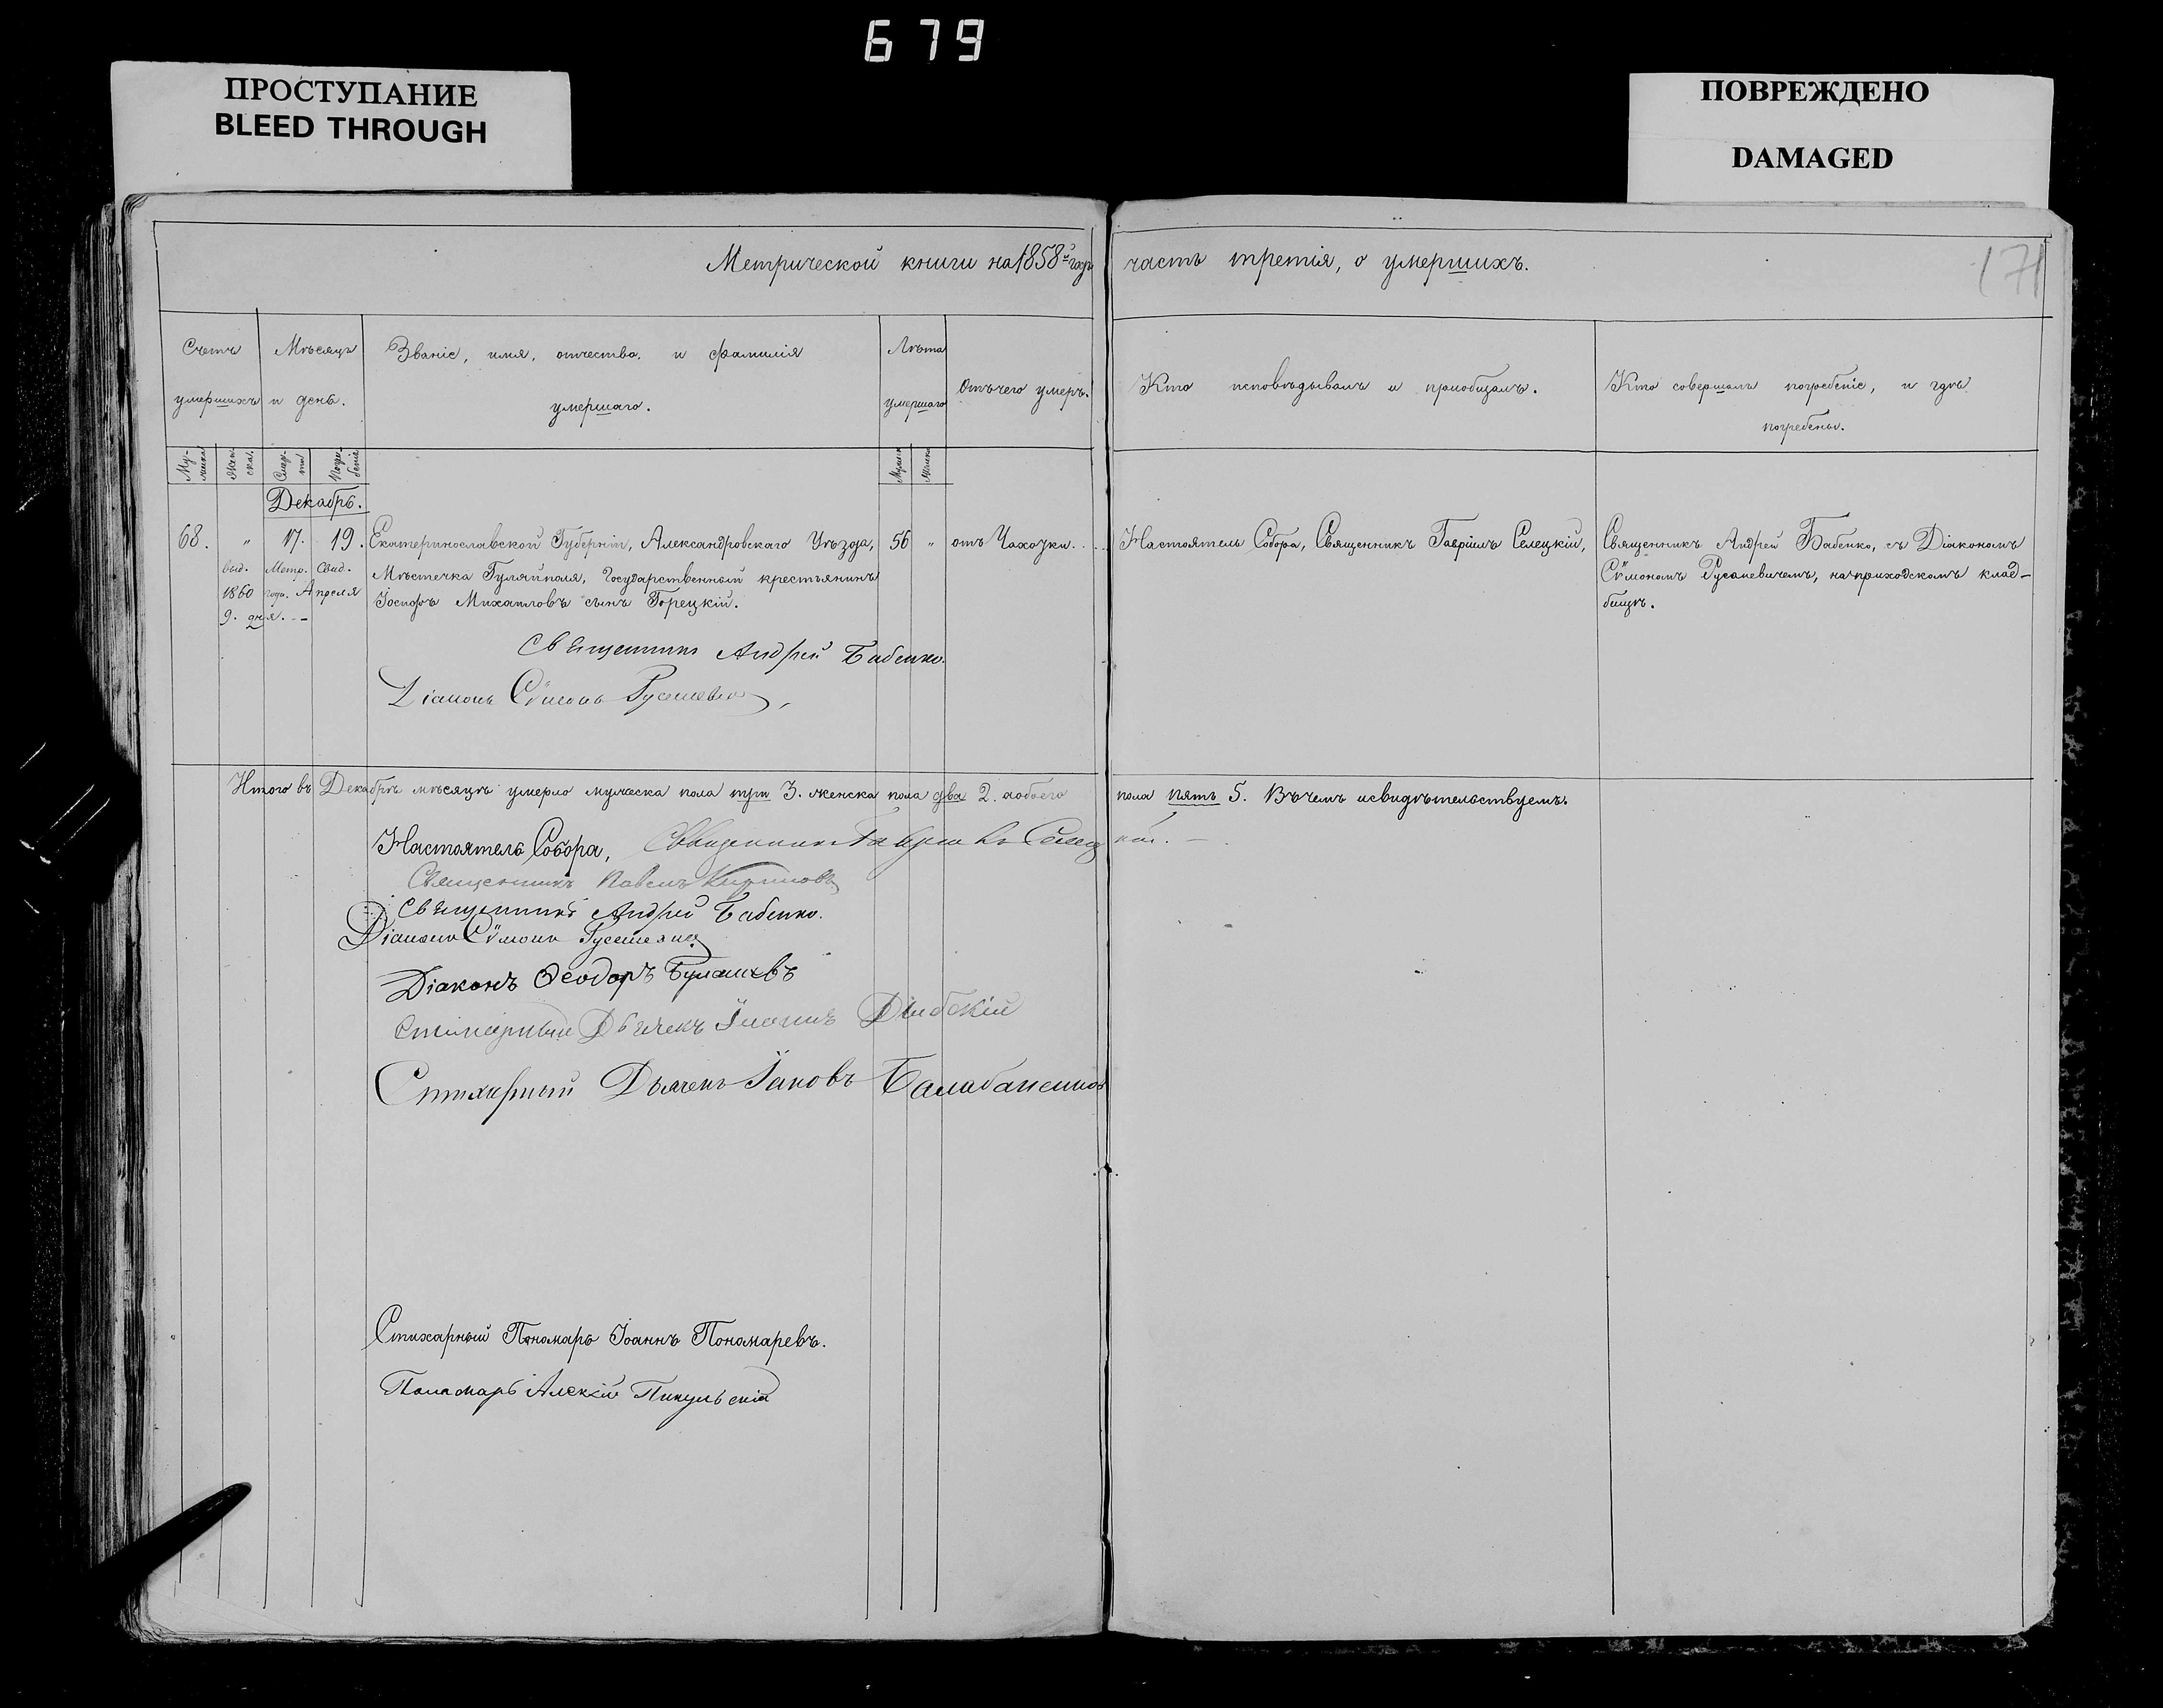 679
ПРОСТУПАНИЕ
BLEED THROUGH
ПОВРЕЖДЕНО
DAMAGED
171
Метрической книги на 1858й годъ часть третія, о умершихъ.
Счетъ умершихъ
Мѣсяцъ и день.
Званіе, имя, отчество, и фамилія умершаго.
Лѣта умершаго
Отъ чего умеръ.
Кто исповѣдывалъ и пріобщалъ.
Кто совершалъ погребеніе, и гдѣ погребены.
Декабрь.
68. " 17. 19. Екатеринославской Губерніи, Александровскаго Уѣзда, 56 " отъ Чахотки.
Мѣстечка Гуляйполя, Государственный крестьянинъ
Іосифъ Михайловъ сынъ Горецкій.
Настоятель Собора, Священникъ Гавріилъ Селецкій,
Священникъ Андрей Бабенко, съ Діакономъ
Сѵмономъ Русаневичемъ, на приходскомъ клад-
бищѣ.
выд. Метр. Свид.
1860 года. Апреля
9. дня.
Священникъ Андрей Бабенко.
Діаконъ Сѵмонъ
Итого въ Декабрѣ мѣсяцѣ умерло мужеска пола три 3. женска пола два 2. а обоего пола пять 5. Въ чемъ и свидѣтельствуемъ.
Настоятель Собора, Священникъ Гавріилъ Селецкій.
Священникъ Павелъ
Священникъ Андрей Бабенко.
Діаконъ Сѵмонъ
Діаконъ Ѳеодоръ
Стихарный Дьячекъ Іоаннъ
Стихарный Дьячекъ Іаковъ
Стихарный Пономарь Іоаннъ Пономаревъ.
Пономарь Алексій Пикульскій